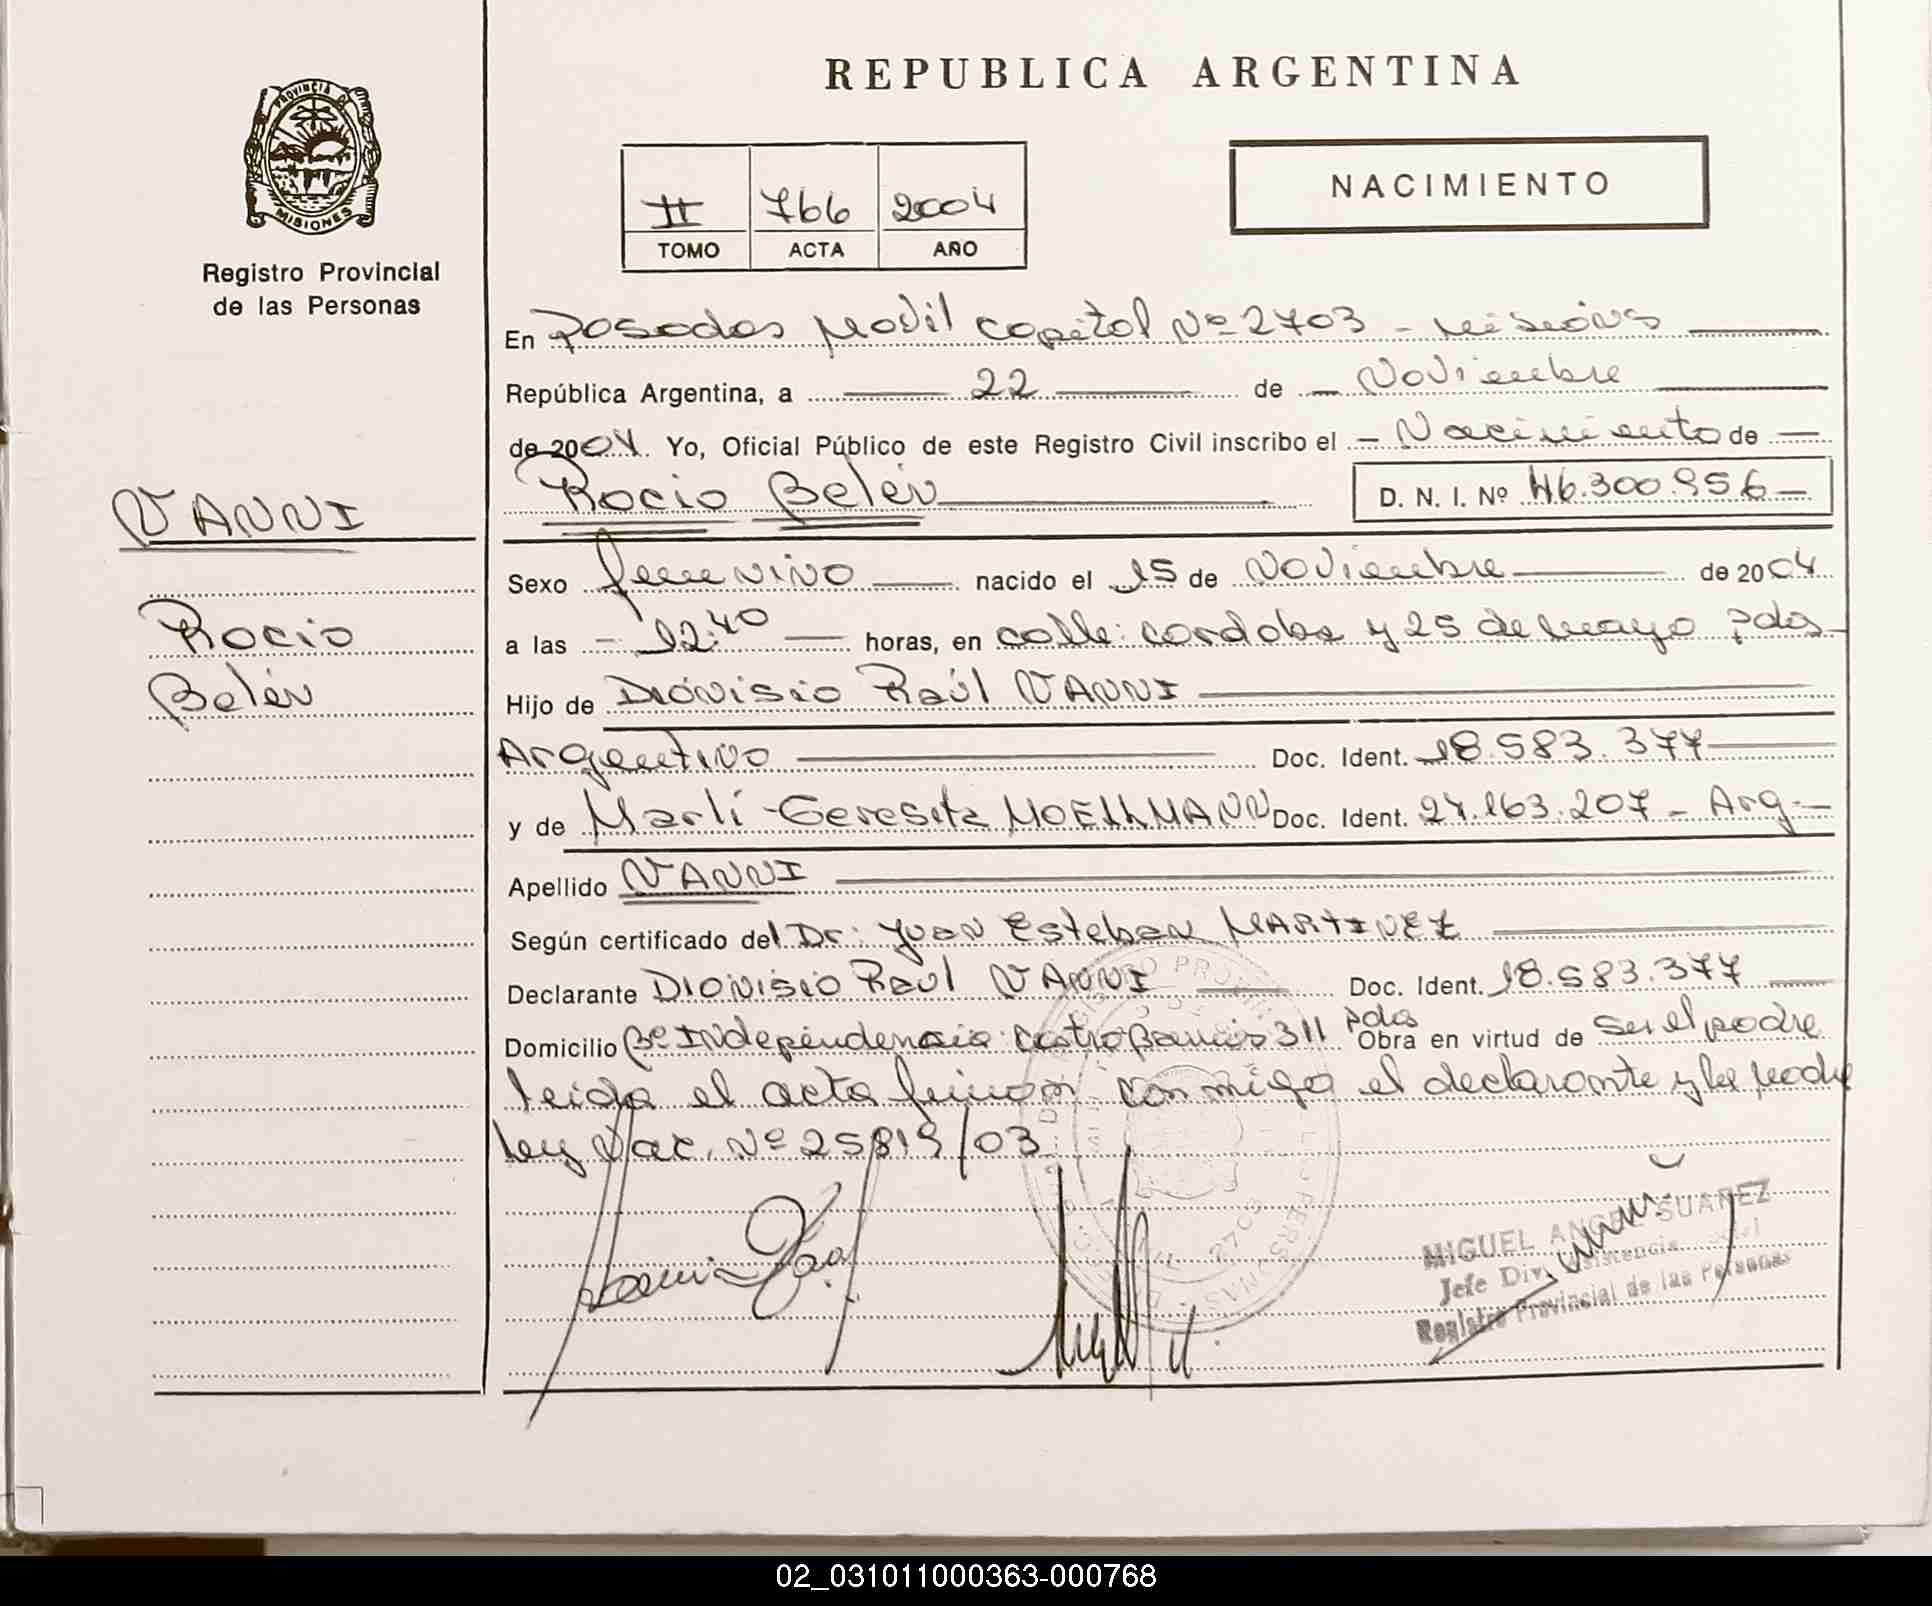 REPUBLICA ARGENTINA
PROVINCIA DE
MISIONES
Registro Provincial
de las Personas
II 766 2004
TOMO ACTA AÑO
NACIMIENTO
En Posadas Movil Capital Nº 2703 - Misiones
República Argentina, a 22 de - Noviembre
de 2004. Yo, Oficial Público de este Registro Civil inscribo el - Nacimiento de -
VANNI
Rocio Belén D. N. I. Nº 46.300.956-
Sexo femenino nacido el 15 de Noviembre de 2004
Rocio
Belén
a las - 12:40 horas, en calle: cordoba y 25 de mayo Pdas-
Hijo de Dionisio Raúl VANNI
Argentino Doc. Ident. 18.583.377
y de Marli Teresita MOELLMANN Doc. Ident. 24.163.207 - Arg.-
Apellido VANNI
Según certificado del Dr: Juan Esteban MARTINEZ
Declarante Dionisio Raul VANNI Doc. Ident. 18.583.377
Domicilio Bº Independencia: 311 Pdas Obra en virtud de ser el padre
leida el acta firman conmigo el declarante y la madre
Ley Nac. Nº 25819/03
MIGUEL ANGEL SUAREZ
Jefe Div. Asistencia
Registro Provincial de las Personas
02_031011000363-000768